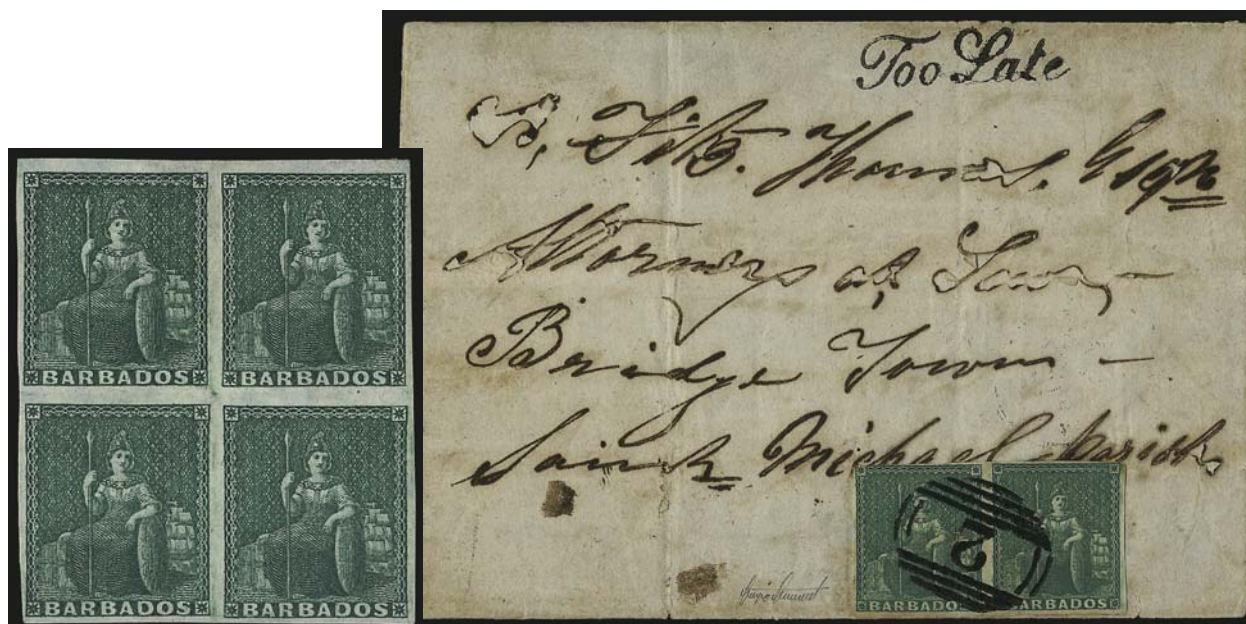 BARBADOS BARBADOS
BARBADOS BARBADOS
Too Late
Thomas. Esqre
Attorney at Law,
Bridge Town
Saint Michael Parish
2
BARBADOS BARBADOS